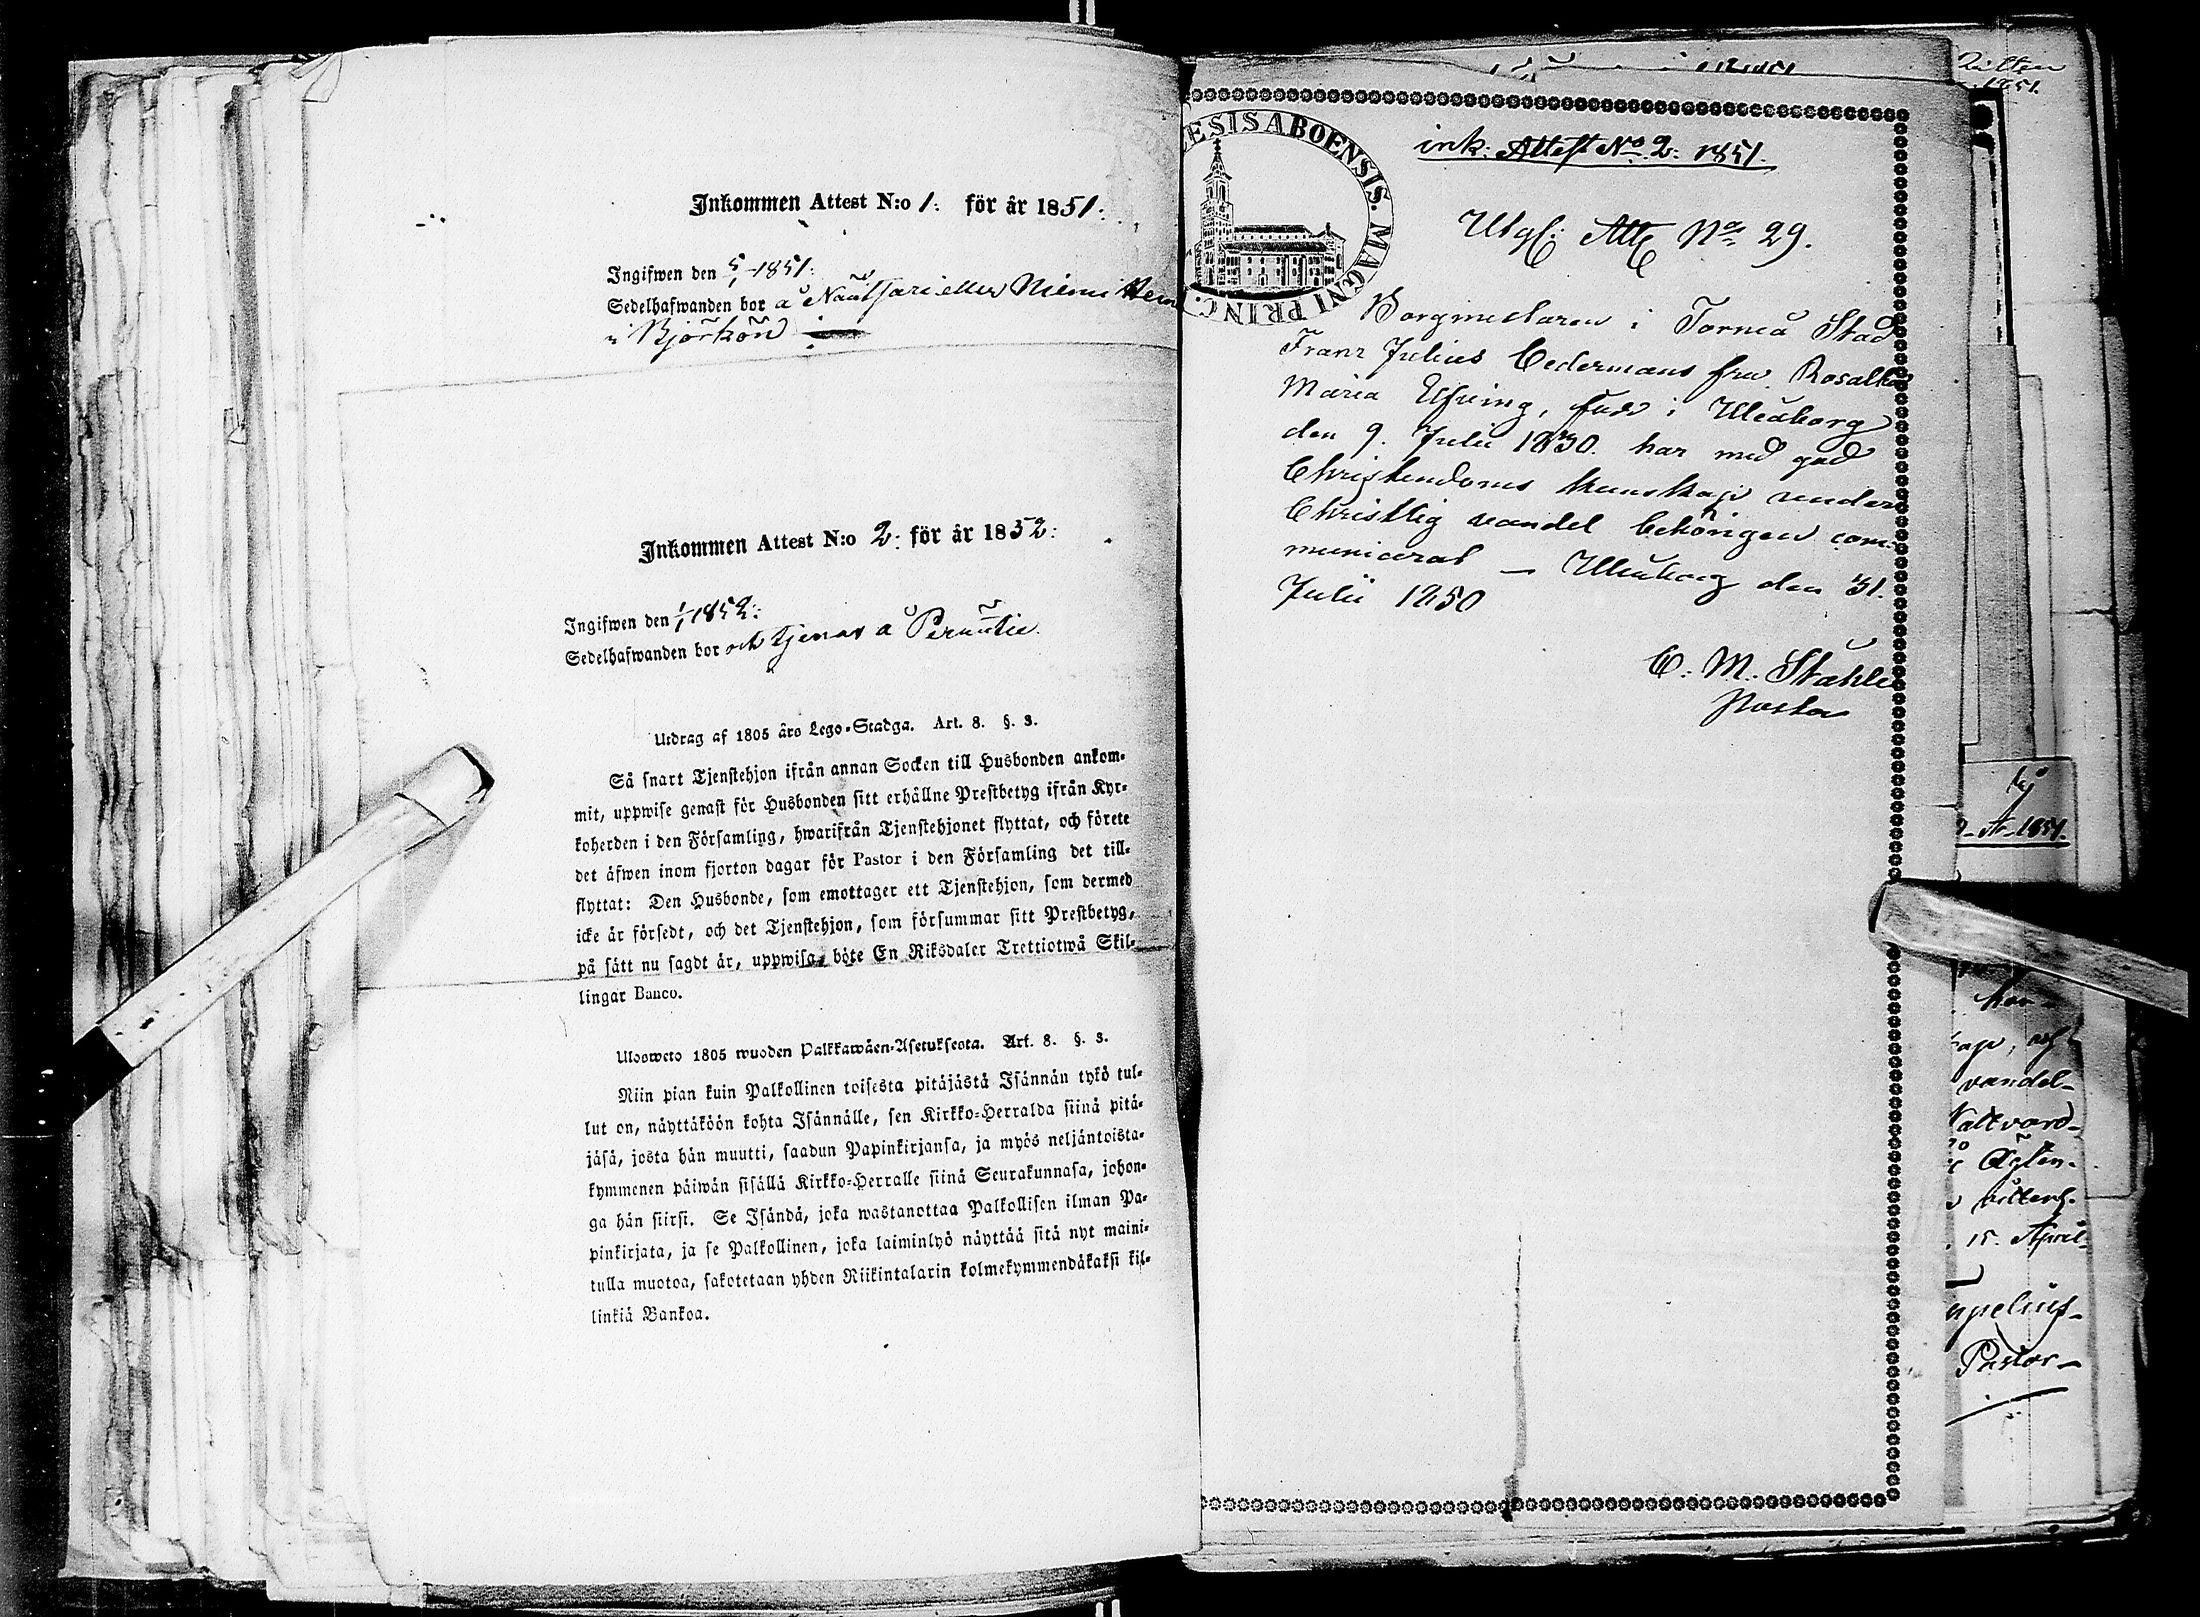 Inkommen Attest N:o 1: för år 1851:
Ingifwen den 5/1 1851:
Sedelhafwanden bor å Nautsari eller Niemi
i Björkön
Inkommen Attest N:o 2: för år 1852:
Ingifwen den 1/1 1852:
Sedelhafwanden bor och tjenar å
Utdrag af 1805 års Lego-Stadga. Art. 8. §. 3.
Så snart Tjenstehjon ifrån annan Socken till Husbonden ankom-
mit, uppwise genast för Husbonden sitt erhållne Prestbetyg ifrån Kyr-
koherden i den Församling, hwarifrån Tjenstehjonet flyttat, och förete
det äfwen inom fjorton dagar för Pastor i den Församling det till-
flyttat: Den Husbonde, som emottager ett Tjenstehjon, som dermed
icke är försedt, och det Tjenstehjon, som försummar sitt Prestbetyg,
på sätt nu sagdt är, uppwisa, böte En Riksdaler Trettiotwå Skil-
lingar Banco.
Ulosweto 1805 wuoden Palkkawäen-Asetuksesta. Art. 8. §. 3.
Niin pian kuin Palkollinen toisesta pitäjästä Isännän tykö tul-
lut on, näyttäköön kohta Isännälle, sen Kirkko-Herralda siinä pitä-
jäsä, josta hän muutti, saadun Papinkirjansa, ja myös neljäntoista-
kymmenen päiwän sisällä Kirkko-Herralle siinä Seurakunnasa, johon-
ga hän siirsi. Se Isändä, joka wastanottaa Palkollisen ilman Pa-
pinkirjata, ja se Palkollinen, joka laiminlyö näyttää sitä nyt maini-
tulla muotoa, sakotetaan yhden Riikintalarin kolmekymmendäkaksi kil-
linkiä Bankoa.
ESIS ABOENSIS. MAGNI PRINC.
ink: Attest No 2: 1851.
Utgf: Att No 29.
Borgmestaren i Torneå Stad
Franz Julius Cedermans fru Rosalia
Maria Elfving, född i Uleåborg
den 9. Julii 1830. har med god
Christendoms kunskap under
Christlig vandel behörigen com-
municerat — Uleåborg den 31.
Julii 1850
C. M. Ståhle
Pastor
1851.
1851.
har
vandel-
15. April
Pastor